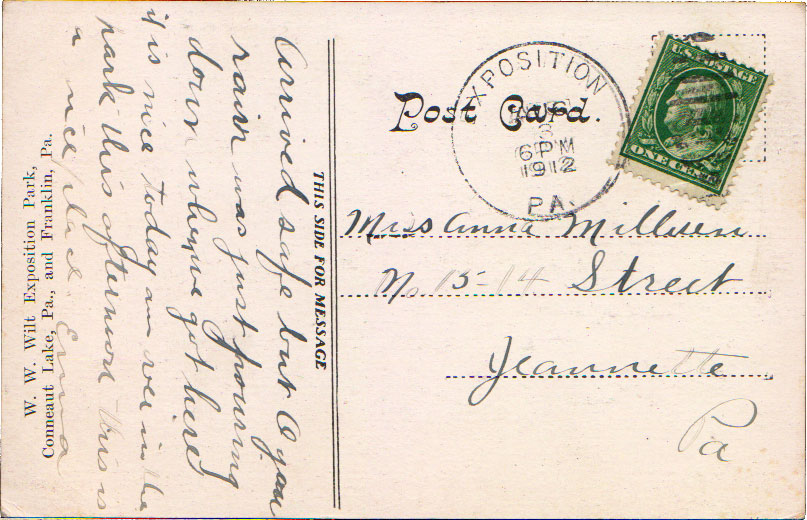 Post Card.
EXPOSITION
AUG
3
6 PM
1912
PA.
U.S. POSTAGE
ONE CENT
Miss Anna Millween
No 15-14 Street
Jeannette
Pa
THIS SIDE FOR MESSAGE
Arrived safe but O you
rain was just pouring
down when we got here
it is nice today am over in the
park this afternoon this is
a nice place. Erma
W. W. Wilt Exposition Park,
Conneaut Lake, Pa., and Franklin, Pa.